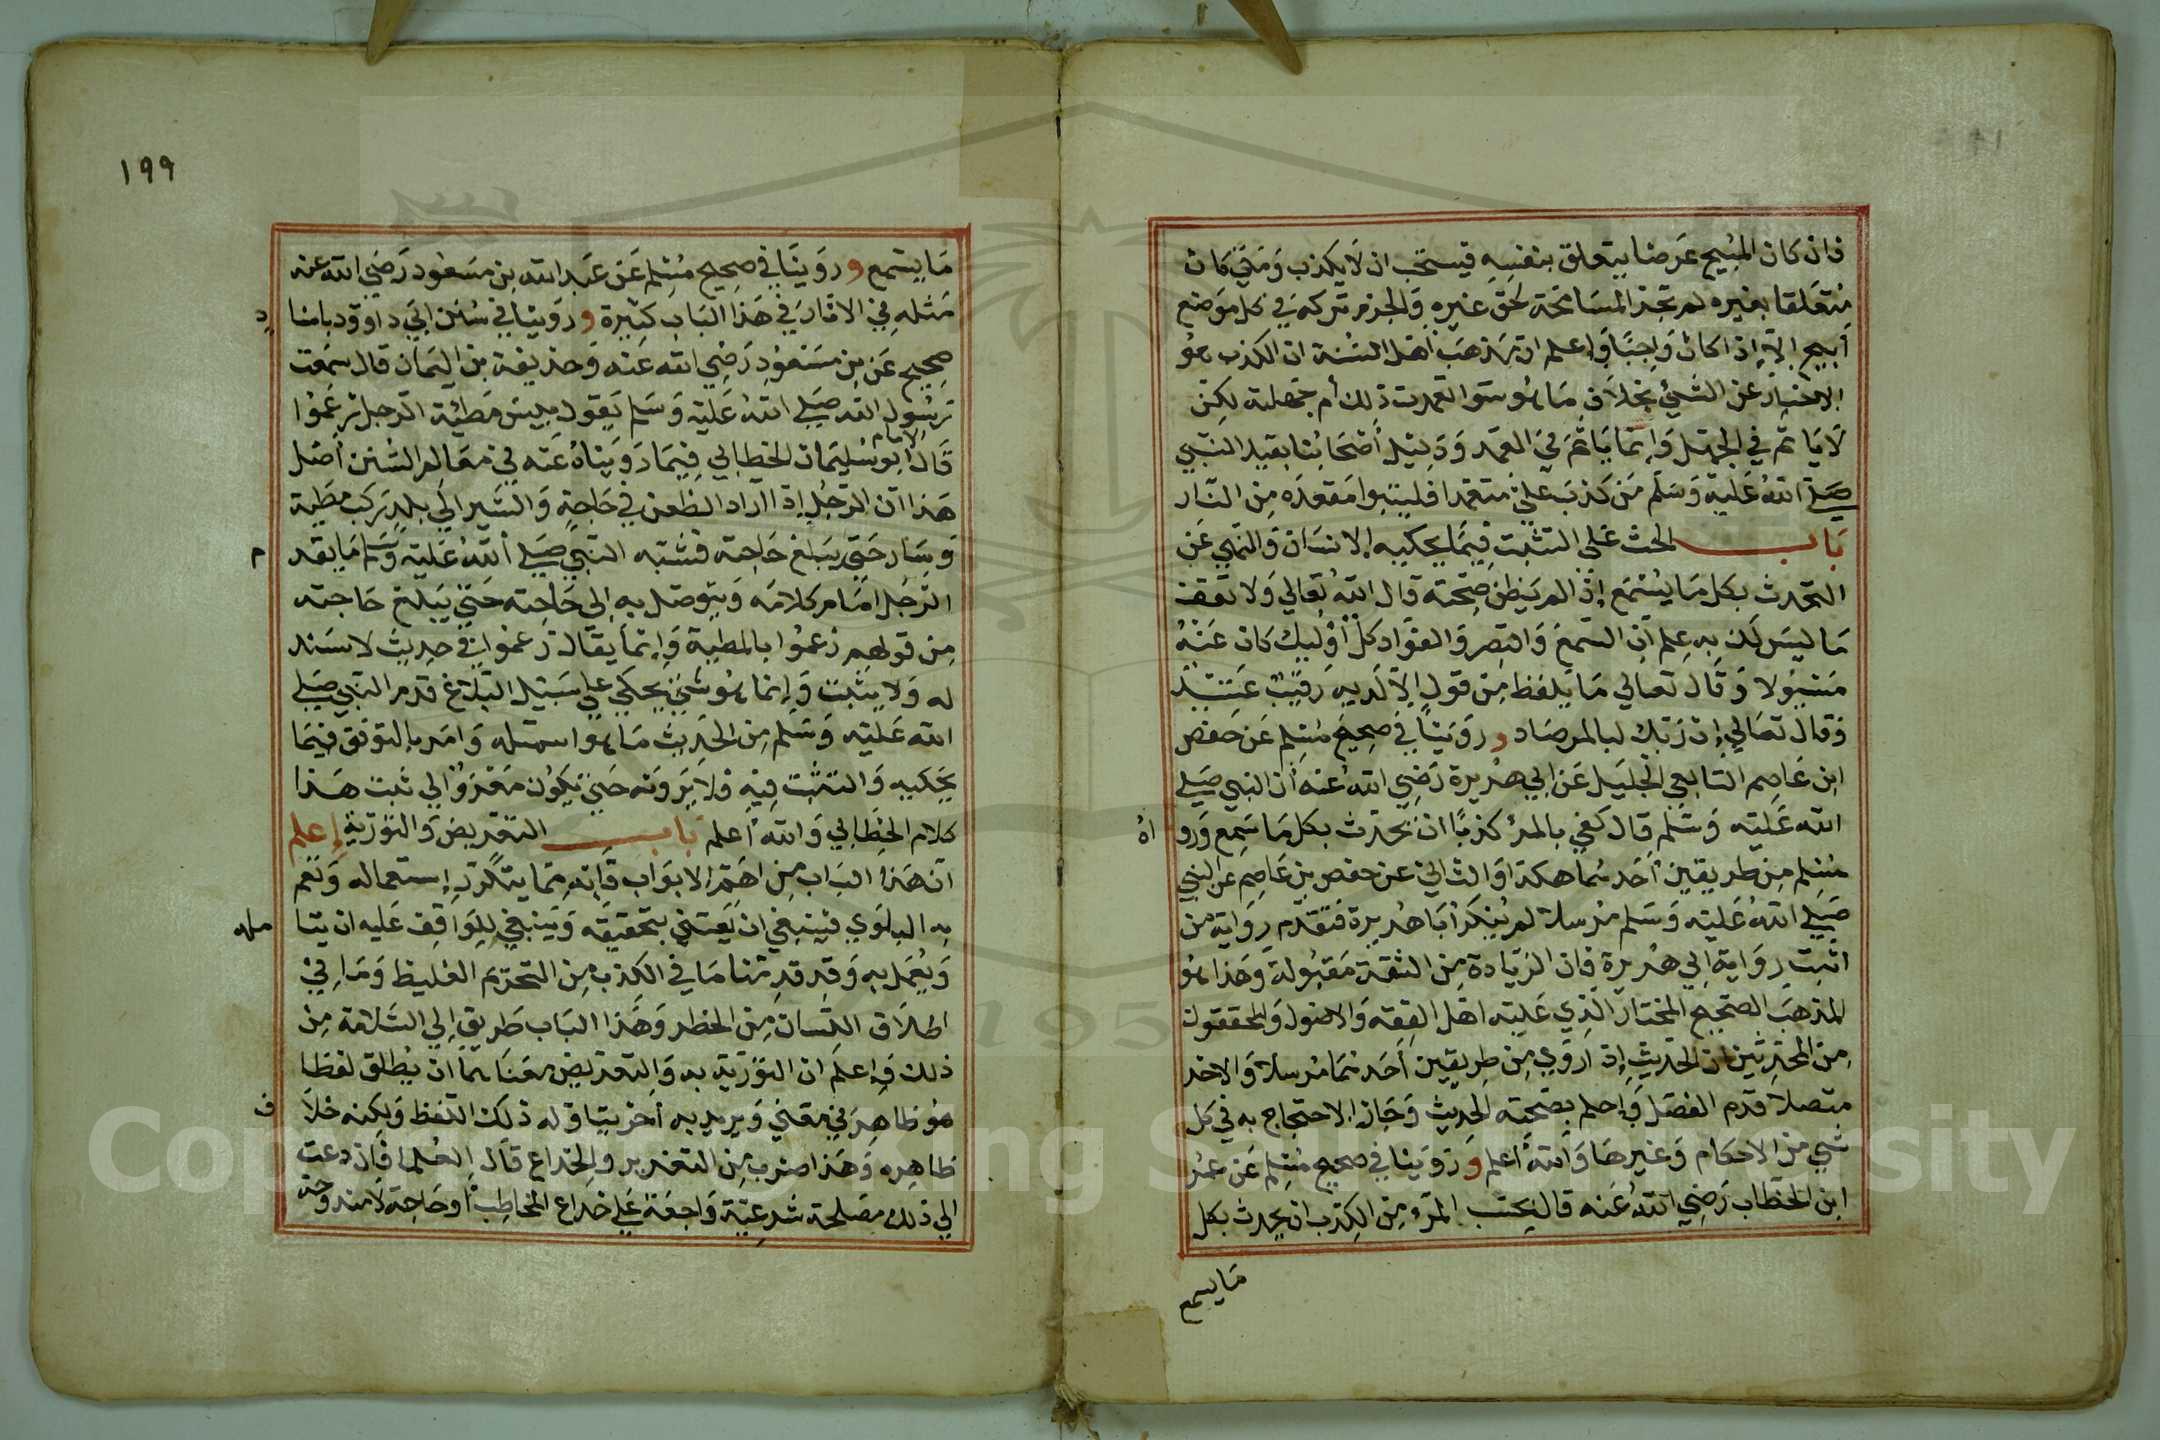 فان كان المبيح غرضا يتعلق بنفسه فيستحب ان لا يكذب ومتي كان
متعلقا بغيره لم تجز المسامحة لحق غيره والجزم تركه في كل موضع
أبيح الا اذا كان واجبا واعلم ان مذهب اهل السنة ان الكذب هو
الاخبار عن الشيئ بخلاف ما هو سوا تعمدت ذلك أم جهلته لكن
لا ياثم في الجهل وانما ياثم في العمد ودليل أصحابنا بقيد النبي
صلي الله عليه وسلم من كذب علي متعمدا فليتبوا مقعده من النار
باب الحث علي التثبت فيما يحكيه الانسان والنهي عن
التحدث بكل ما يستمع إذا لم يظن صحته قال الله تعالي ولا تقف
ما ليس لك به علم ان السمع والبصر والفؤاد كل أوليك كان عنه
مسئولا وقال تعالي ما يلفظ من قول الا لديه رقيب عتيد
وقال تعالي إن ربك لبالمرصاد و روينا في صحيح مسلم عن حفص
ابن عاصم التابعي الجليل عن ابي هريرة رضي الله عنه أن النبي صلي
الله عليه وسلم قال كفي بالمرء كذبا ان يحدث بكل ما سمع ورو
اه
مسلم من طريقين أحدهما هكذا والثاني عن حفص بن عاصم عن النبي
صلي الله عليه وسلم مرسلا لم يذكر أبا هريرة فتقدم رواية من
اثبت رواية ابي هريرة فان الزيادة من الثقة مقبولة وهذا هو
المذهب الصحيح المختار الذي عليه اهل الفقه والاصول والمحققون
من المحدثين ان الحديث إذا روي من طريقين أحدهما مرسلا والاخر
متصلا قدم الفصل واحلم بصحته الحديث وجاز الاحتجاج به في كل
شي من الاحكام وغيرها والله أعلم و روينا في صحيح مسلم عن عمر
ابن الخطاب رضي الله عنه قال يحسب المرء من الكذب ان يحدث بكل
ما يسمع
١٩٩
ما يستمع و روينا في صحيح مسلم عن عبد الله بن مسعود رضي الله عنه
مثله في الاثار في هذا الباب كثيرة و روينا في سنن ابي داوود باسنا
د
صحيح عن بن مسعود رضي الله عنه وحذيفة بن اليمان قال سمعت
رسول الله صلي الله عليه وسلم يقول بيس مطية الرجل زعموا
الامام
قال ابو سليمان الخطابي فيما رويناه عنه في معالم السنن أصل
هذا ان الرجل إذا اراد الظعن في حاجة والسير الي بلد ركب مطية
وسار حتي يبلغ حاجته فشبه النبي صلي الله عليه وسلم ما يقد
م
الرجل امام كلامه ويتوصل به الى حاجته حتي يبلغ حاجته
من قولهم زعموا بالمطية وإنما يقال زعموا في حديث لا سند
له ولا يثبت وإنما هو شيئ يحكي علي سبيل البلاغ فذم النبي صلي
الله عليه وسلم من الحديث ما هو اسمتله وامر بالتوثق فيما
يحكيه والتثبت فيه فلا يرونه حتي يكون معزوا الي ثبت هذا
كلام الخطابي والله أعلم باب التعريض والتورية إعلم
ان هذا الباب من اهم الابواب فانه مما يتكرر استعماله وتعم
به البلوي فينبغي ان يعتني بتحقيقه وينبغي للواقف عليه ان يتا
مله
ويعمل به وقد قدمنا ما في الكذب من التحريم الغليظ وما في
اطلاق اللسان من الخطر وهذا الباب طريق الي السلامة من
ذلك واعلم ان التورية به والتعريض معناهما ان يطلق لفظا
هو ظاهر في معني ويريد به أخر يتناوله ذلك اللفظ ولكنه خلا
ف
ظاهره وهذا ضرب من التغرير والخداع قال العلما فان دعت
الي ذلك مصلحة شرعية راجحة علي خداع المخاطب او حاجة لا مندوحة